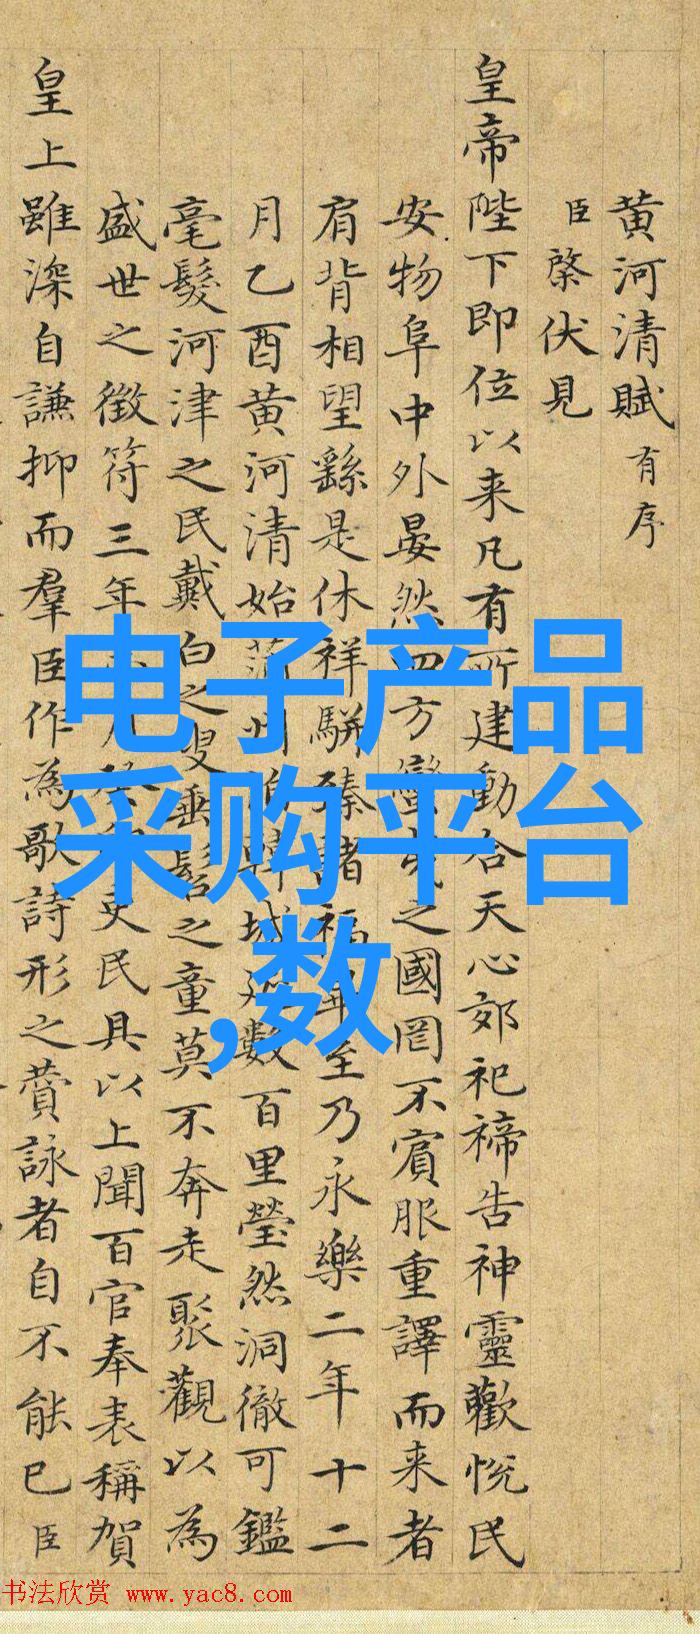 黄河清賦 有序
臣棨伏見
皇帝陛下即位以来凡有所建動合天心郊祀禘告神靈歡悦民
安物阜中外晏然四方蠻夷之國罔不賓服重譯而来者
肩背相望繇是休祥駢臻諸福畢至乃永樂二年十二
月乙酉黄河清始蒲州韓城數百里瑩然洞徹可鑑
毫髮河津之民戴白之叟垂髫之童莫不奔走聚觀以為
盛世之徵符三年吏民具以上聞百官奉表稱賀
皇上雖深自謙抑而羣臣作為歌詩形之賛詠者自不能已臣
电子产品
采购平台
,数
书法欣赏 www.yac8.com